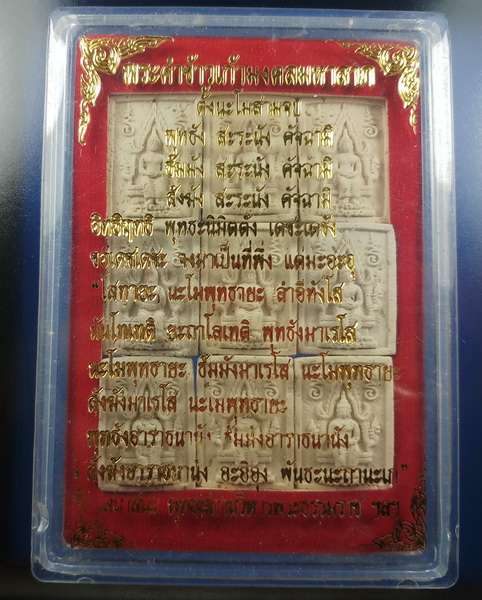 พระคำข้าวเก้ามงคลมหาลาภ
ตั้งนะโมสามจบ
พุทธัง สะระนัง คัจฉามิ
ธัมมัง สะระนัง คัจฉามิ
สังฆัง สะระนัง คัจฉามิ
อิทธิฤทธิ พุทธะนิมิตตัง เดชะเดชัง
ขอเดชเดชะ จงมาเป็นที่พึ่ง แด่มะอะอุ
นะโมพุทธายะ
พุทธังมาเรโส
นะโมพุทธายะ ธัมมังมาเรโส นะโมพุทธายะ
สังฆังมาเรโส นะโมพุทธายะ
พุทธังอาราธนานัง ธัมมังอาราธนานัง
สังฆังอาราธนานัง